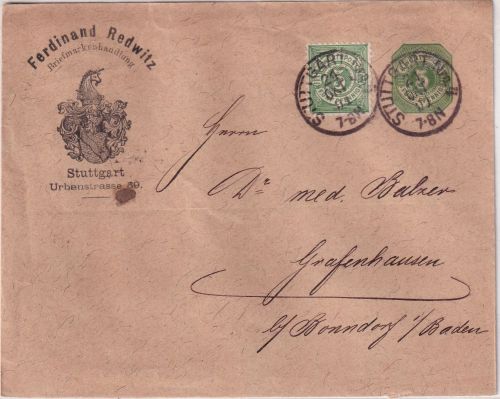 Ferdinand Redwitz
Briefmarkenhandlung
Stuttgart
Urbanstrasse 39.
STUTTGART
5
7-8N
STUTTGART
5
7-8N
Herrn
Dr. med. Balzer
Grafenhausen
b/ Bonndorf i/Baden